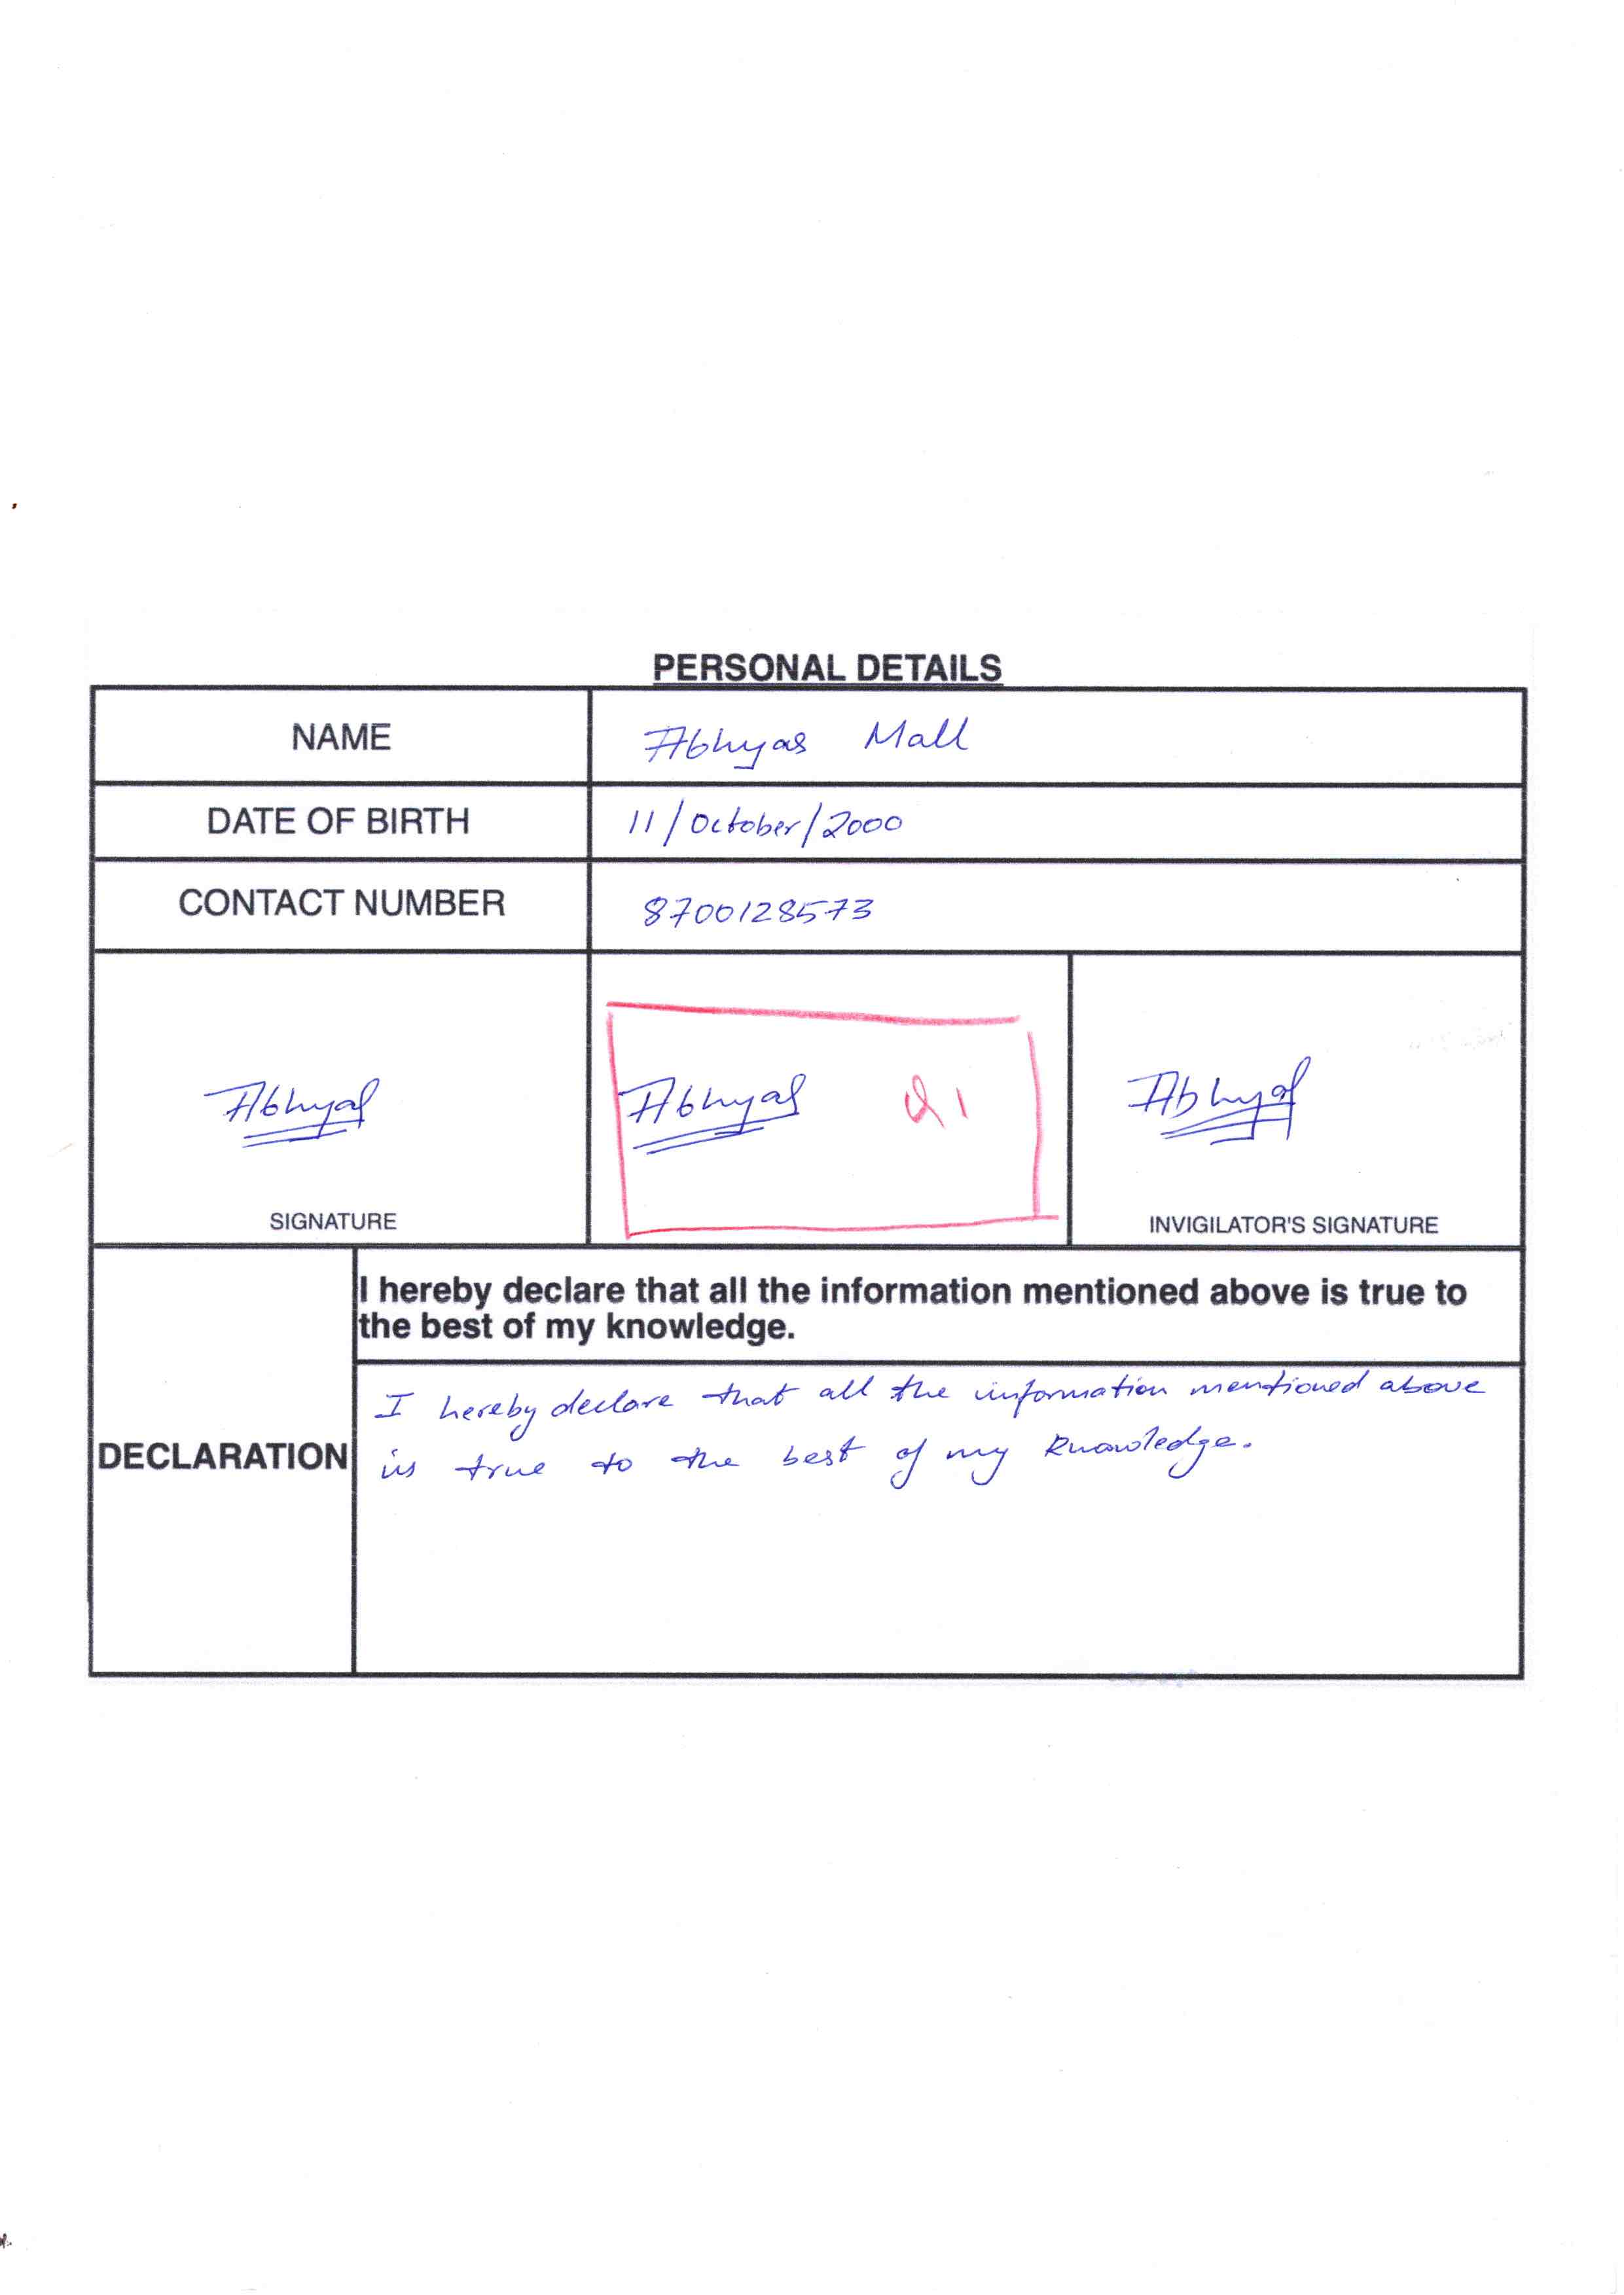 PERSONAL DETAILS
NAME Abhyas Mall
DATE OF BIRTH 11/October/2000
CONTACT NUMBER 8700128573
Abhyas Abhyas Abhyas
SIGNATURE INVIGILATOR'S SIGNATURE
I hereby declare that all the information mentioned above is true to
the best of my knowledge.
I hereby declare that all the information mentioned above
DECLARATION is true to the best of my knowledge.